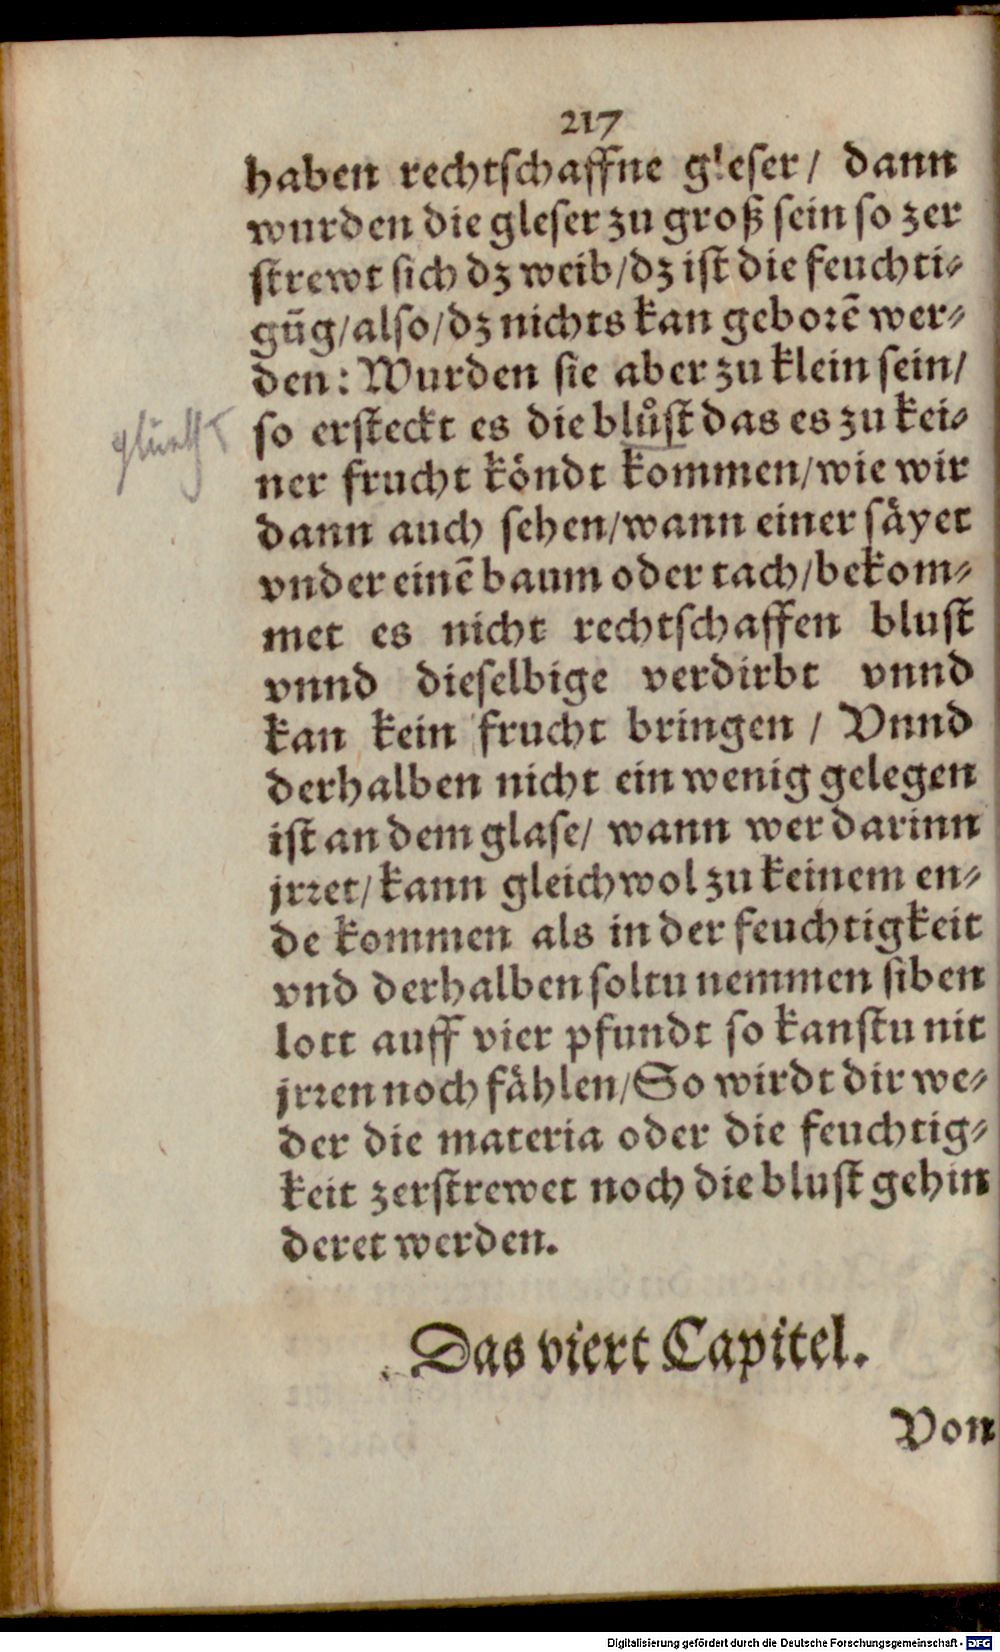 217
haben rechtschaffne gleser/ dann
wurden die gleser zu groß sein so zer
strewt sich dz weib/dz ist die feuchti⸗
gūg/also/dz nichts kan geborē wer⸗
den: Wurden sie aber zu klein sein/
so ersteckt es die blůst das es zu kei⸗
ner frucht köndt kommen/wie wir
dann auch sehen/wann einer säyet
vnder einē baum oder tach/bekom⸗
met es nicht rechtschaffen blust
vnnd dieselbige verdirbt vnnd
kan kein frucht bringen / Vnnd
derhalben nicht ein wenig gelegen
ist an dem glase/ wann wer darinn
jrret/kann gleichwol zu keinem en⸗
de kommen als in der feuchtigkeit
vnd derhalben soltu nemmen siben
lott auff vier pfundt so kanstu nit
jrren noch fählen/So wirdt dir we⸗
der die materia oder die feuchtig⸗
keit zerstrewet noch die blust gehin
deret werden.
Das viert Capitel.
Von
Digitalisierung gefördert durch die Deutsche Forschungsgemeinschaft - DFG